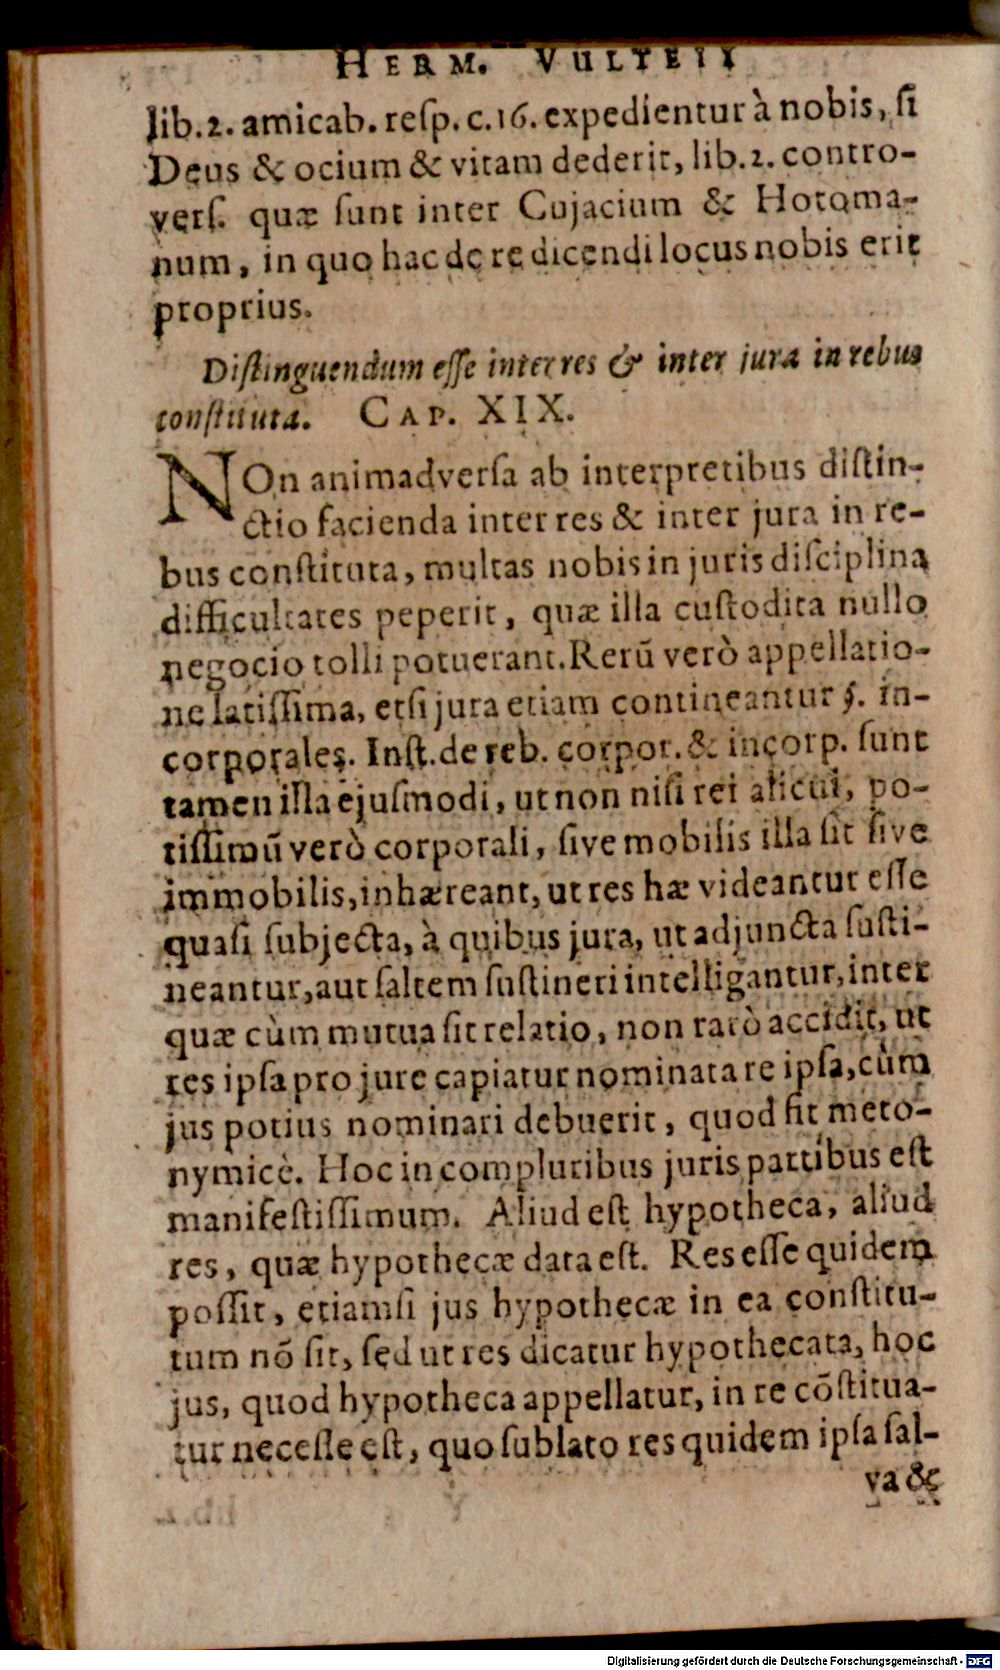 HERM. VULTEII
lib.2. amicab. reſp. c.16. expedientur à nobis, ſi
Deus & ocium & vitam dederit, lib.2. contro-
verſ. quæ ſunt inter Cujacium & Hotoma-
num, in quo hac de re dicendi locus nobis erit
proprius.
Diſtinguendum eſſe inter res & inter jura in rebus
conſtituta. CAP. XIX.
NOn animadverſa ab interpretibus diſtin-
ctio facienda inter res & inter jura in re-
bus conſtituta, multas nobis in juris diſciplina
difficultates peperit, quæ illa cuſtodita nullo
negocio tolli potuerant. Rerũ verò appellatio-
ne latiſſima, etſi jura etiam contineantur §. in-
corporales. Inſt. de reb. corpor. & incorp. ſunt
tamen illa ejuſmodi, ut non niſi rei alicui, po-
tiſſimũ verò corporali, ſive mobilis illa ſit ſive
immobilis, inhæreant, ut res hæ videantur eſſe
quaſi ſubjecta, à quibus jura, ut adjuncta ſuſti-
neantur, aut ſaltem ſuſtineri intelligantur, inter
quæ cùm mutua ſit relatio, non rarò accidit, ut
res ipſa pro jure capiatur nominata re ipſa, cùm
jus potius nominari debuerit, quod fit meto-
nymicè. Hoc in compluribus juris partibus eſt
manifeſtiſſimum. Aliud eſt hypotheca, aliud
res, quæ hypothecæ data eſt. Res eſſe quidem
poſſit, etiamſi jus hypothecæ in ea conſtitu-
tum nõ ſit, ſed ut res dicatur hypothecata, hoc
jus, quod hypotheca appellatur, in re cõſtitua-
tur neceſſe eſt, quo ſublato res quidem ipſa ſal-
va &
Digitalisierung gefördert durch die Deutsche Forschungsgemeinschaft - DFG